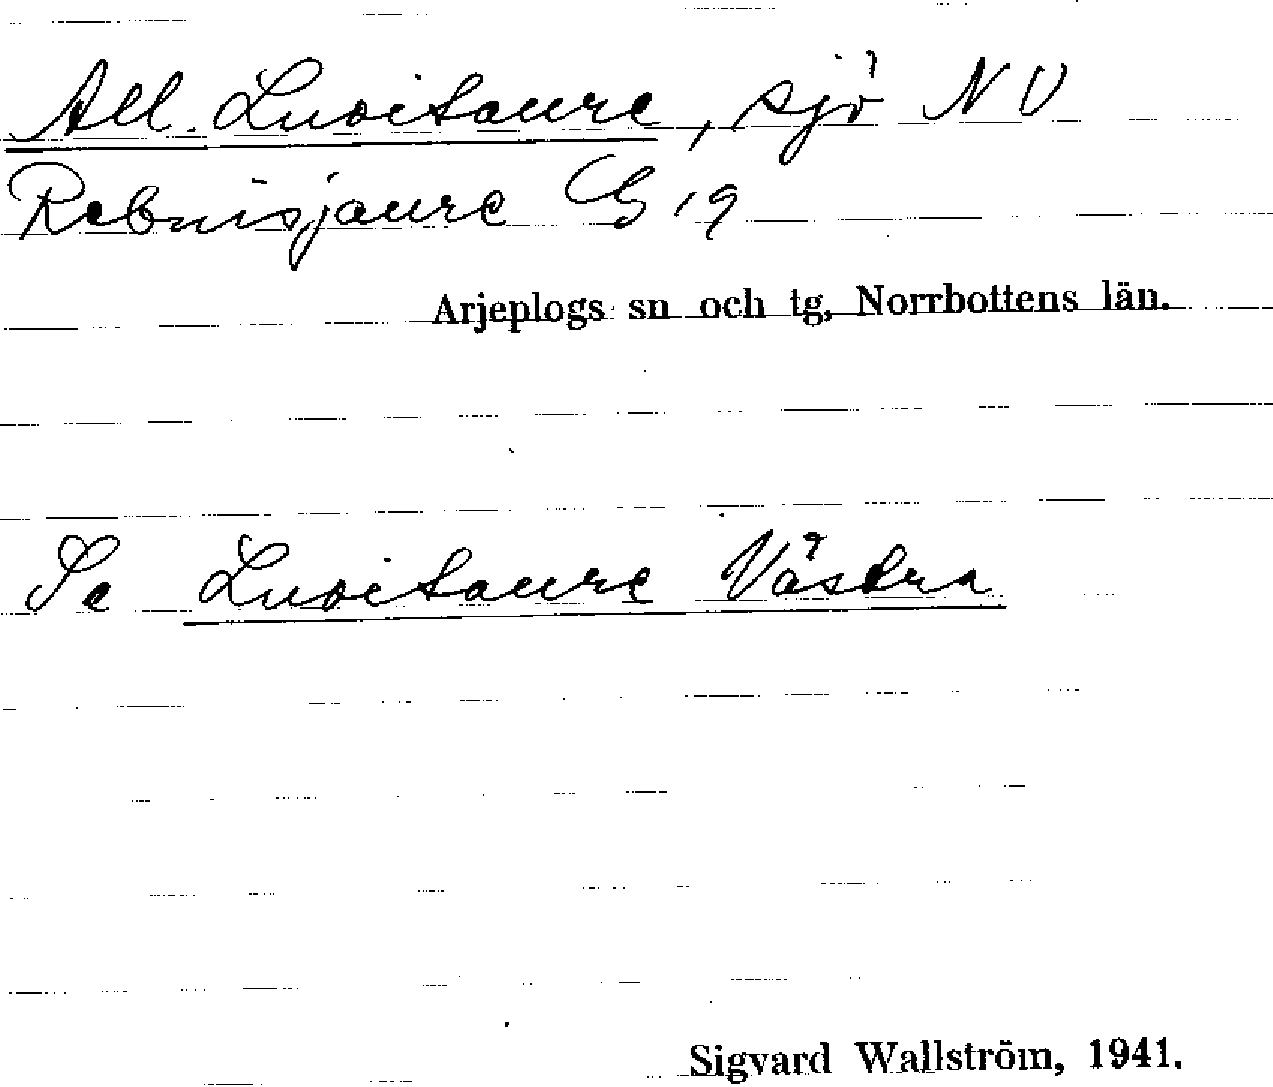 All. Luoitaure, sjö NV
Rebnisjaure G 19
Arjeplogs sn och tg, Norrbottens län.
Se Luoitaure Västra
Sigvard Wallström, 1941.